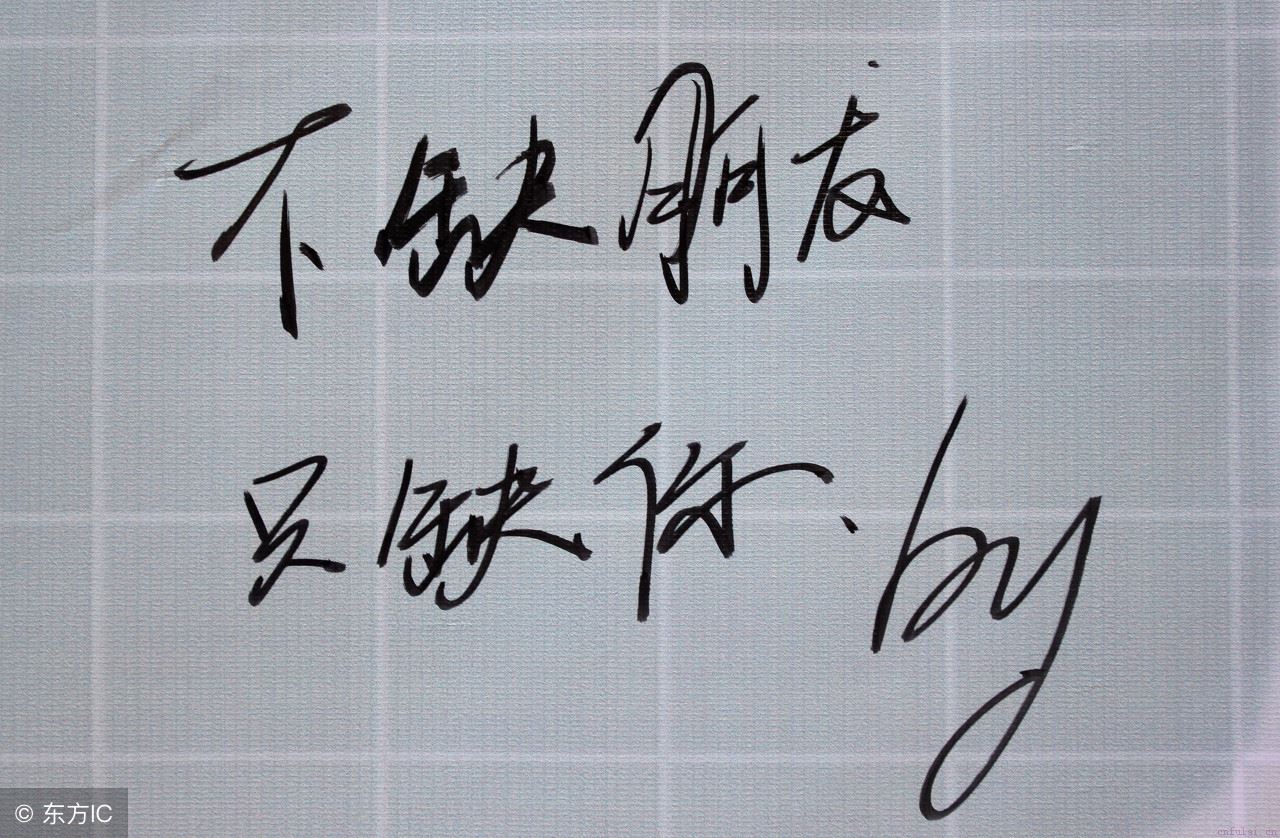 不缺朋友
只缺你、by
© 东方IC
cnfuksi.cn